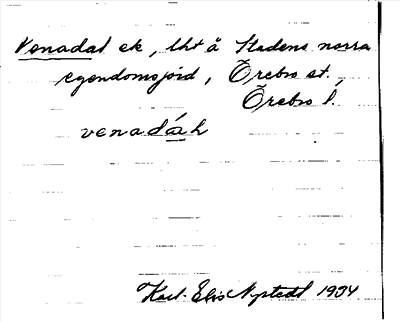 Venadal ek, lht å Stadens norra
egendomsjord, Örebro st.,
Örebro l.
venadá̱h
Karl-Elis Nystedt 1934